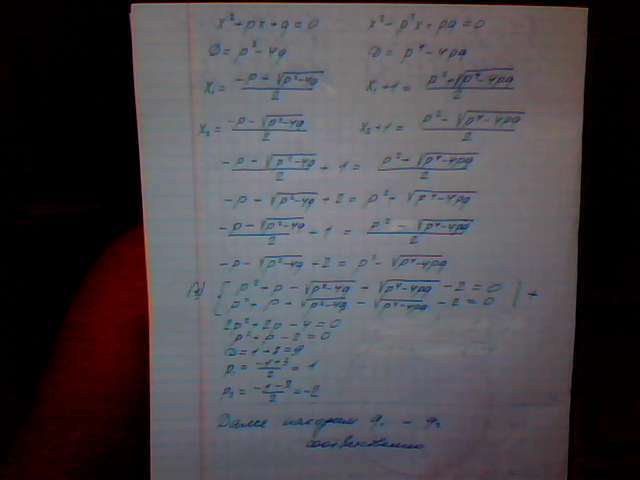 x² + px + q = 0    x² - p²x + pq = 0
D = p² - 4q    D = p⁴ - 4pq
x₁ = (-p + √(p²-4q))/2    x₁ + 1 = (p² + √(p⁴-4pq))/2
x₂ = (-p - √(p²-4q))/2    x₂ + 1 = (p² - √(p⁴-4pq))/2
(-p + √(p²-4q))/2 + 1 = (p² + √(p⁴-4pq))/2
-p + √(p²-4q) + 2 = p² + √(p⁴-4pq)
(-p - √(p²-4q))/2 + 1 = (p² - √(p⁴-4pq))/2
-p - √(p²-4q) + 2 = p² - √(p⁴-4pq)
{ p² + p - √(p²-4q) + √(p⁴-4pq) - 2 = 0 | +
{ p² + p + √(p²-4q) - √(p⁴-4pq) - 2 = 0
2p² + 2p - 4 = 0
p² + p - 2 = 0
D = 1 + 8 = 9
p₁ = (-1+3)/2 = 1
p₂ = (-1-3)/2 = -2
Далее находим q₁ - q₂
соответственно